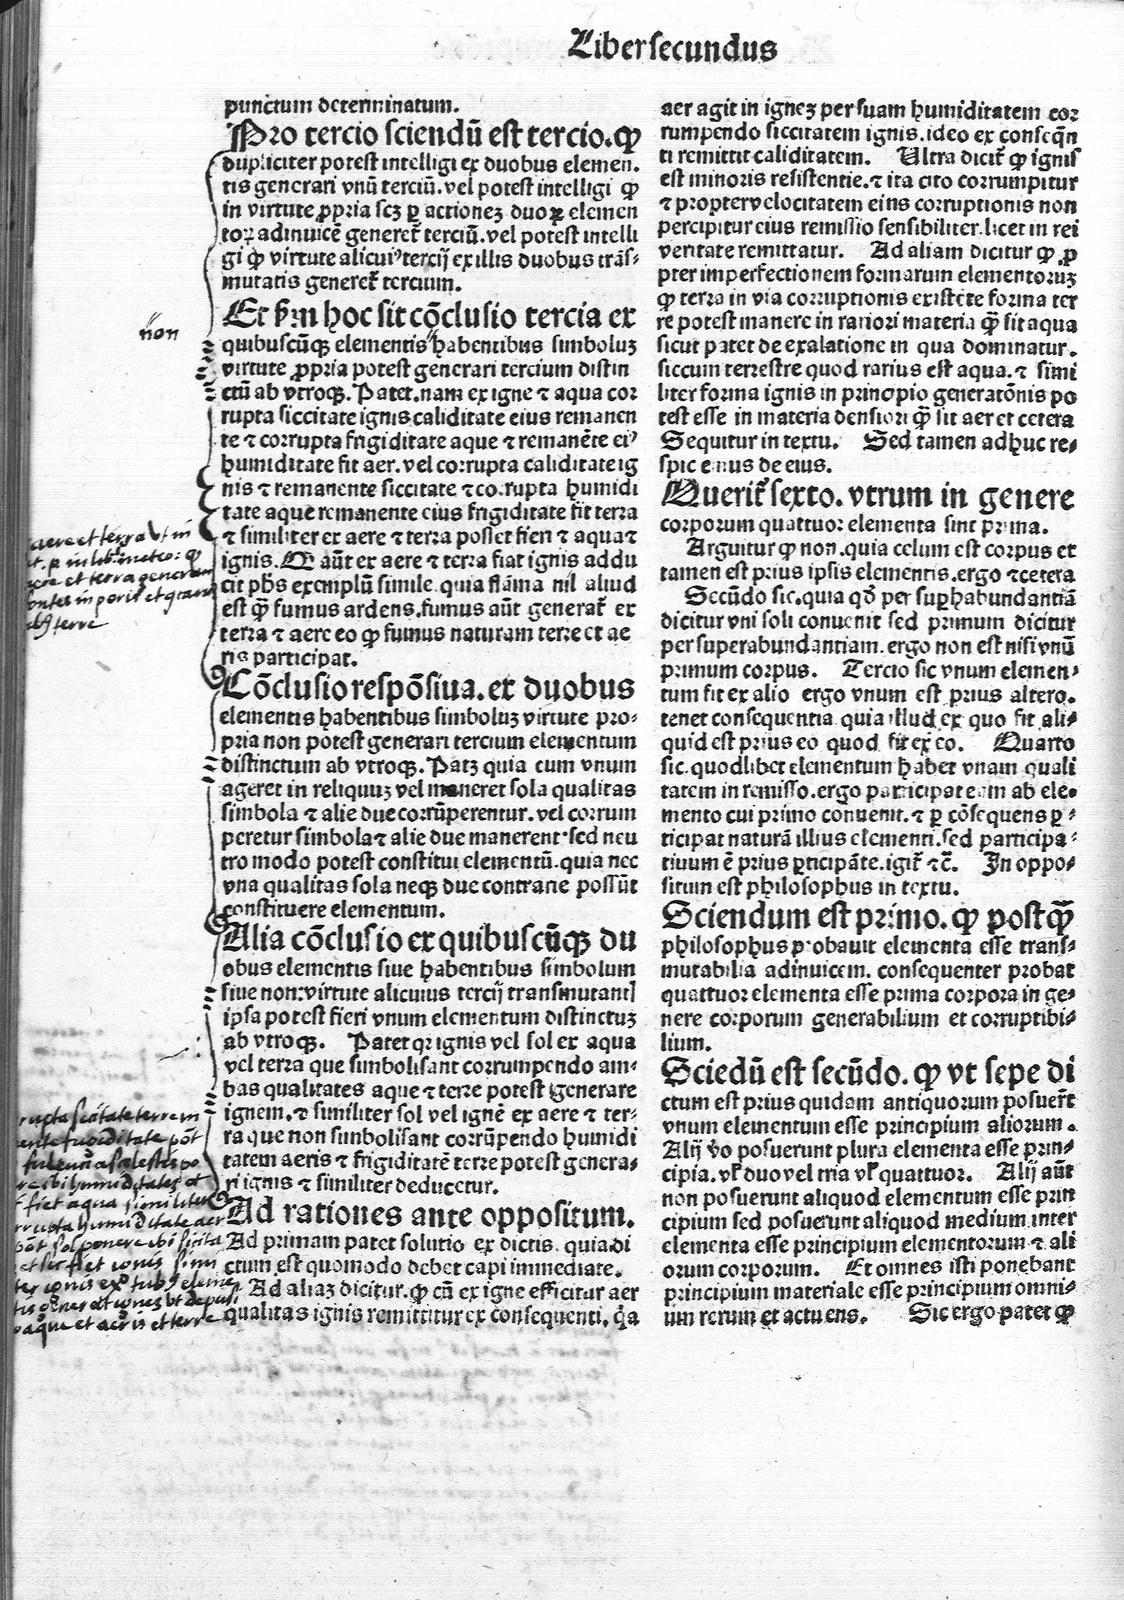 Liber secundus
punctum determinatum.
Pro tercio sciendũ est tercio. ꝙ
dupliciter potest intelligi ex duobus elemen⸗
tis generari vnũ terciũ. vel potest intelligi ꝙ
in virtute ꝓpria scꝫ ꝑ actioneꝫ duoꝝ elemen
toꝝ adinuicẽ generet᷑ terciũ. vel potest intelli
gi ꝙ virtute alicuiꝰ tercij ex illis duobus trãs⸗
mutatis generet᷑ tercium.
Et hoc sit cõclusio tercia ex
quibuscũqꝫ elementis habentibus simboluꝫ
non
virtute ꝓpria potest generari tercium distin
ctũ ab vtroqꝫ. Patet. nam ex igne ⁊ aqua cor
rupta siccitate ignis caliditate eius remanen
te ⁊ corrupta frigiditate aque ⁊ remanẽte eiꝰ
humiditate fit aer. vel corrupta caliditate ig
nis ⁊ remanente siccitate ⁊ corrupta humidi
tate aque remanente eius frigiditate fit terra
⁊ similiter ex aere ⁊ terra posset fieri ⁊ aqua ⁊
ignis. Ꝙ aũt ex aere ⁊ terra fiat ignis addu
cit phs̃ exemplũ simile. quia flãma nil aliud
est ꝙ̃ fumus ardens. fumus aũt generat᷑ ex
terra ⁊ aere eo ꝙ fumus naturam terre et ae
ris participat.
aere et terra vt in
et terra
terre
Cõclusio respõsiua. ex duobus
elementis habentibus simboluꝫ virtute pro⸗
pria non potest generari tercium elementum
distinctum ab vtroqꝫ. Patꝫ quia cum vnum
ageret in reliquuꝫ vel maneret sola qualitas
simbola ⁊ alie due corrũperentur. vel corrum
peretur simbola ⁊ alie due manerent. sed neu
tro modo potest constitui elementũ. quia nec
vna qualitas sola neqꝫ due contrarie possũt
constituere elementum.
Alia cõclusio ex quibuscũqꝫ du
obus elementis siue habentibus simbolum
siue non: virtute alicuius tercij transmutant᷑
ipsa potest fieri vnum elementum distinctuꝫ
ab vtroqꝫ. Patet qꝛ ignis vel sol ex aqua
vel terra que simbolisant corrumpendo am⸗
bas qualitates aque ⁊ terre potest generare
ignem. ⁊ similiter sol vel ignẽ ex aere ⁊ ter⸗
ra que non simbolisant corrũpendo humidi
tatem aeris ⁊ frigiditatẽ terre potest genera⸗
ri ignis ⁊ similiter deducetur.
terre
frigiditate põt
humiditates et
fiet aqua similiter
humiditate aer
et sic fiet ignis simi
aque et aeris et terre
Ad rationes ante oppositum.
Ad primam patet solutio ex dictis. quia di
ctum est quomodo debet capi immediate.
Ad aliaꝫ dicitur. ꝙ cũ ex igne efficitur aer
qualitas ignis remittitur ex consequenti. q̃a
aer agit in igneꝫ per suam humiditatem cor
rumpendo siccitatem ignis. ideo ex conseq̃n
ti remittit caliditatem. Ultra dicit᷑ ꝙ ignis
est minoris resistentie. ⁊ ita cito corrumpitur
⁊ propter velocitatem eius corruptionis non
percipitur eius remissio sensibiliter. licet in rei
veritate remittatur. Ad aliam dicitur ꝙ ꝓ
pter imperfectionem formarum elementoruꝫ
ꝙ terra in via corruptionis existẽte forma ter
re potest manere in rariori materia ꝙ̃ sit aqua
sicut patet de exalatione in qua dominatur.
siccum terrestre quod rarius est aqua. ⁊ simi
liter forma ignis in principio generatõnis po
test esse in materia densiori ꝙ̃ sit aer et cetera
Sequitur in textu. Sed tamen adhuc re⸗
spicienus de eius.
Querit᷑ sexto. vtrum in genere
corporum quattuor elementa sint prima.
Arguitur ꝙ non. quia celum est corpus et
tamen est prius ipsis elementis. ergo ⁊cetera
Secũdo sic. quia qđ per suꝑhabundantiã
dicitur vni soli conuenit sed primum dicitur
per superabundantiam. ergo non est nisi vnũ
primum corpus. Tercio sic vnum elemen⸗
tum fit ex alio ergo vnum est prius altero.
tenet consequentia quia illud ex quo fit ali⸗
quid est prius eo quod fit ex eo. Quarto
sic. quodlibet elementum habet vnam quali
tatem in remisso. ergo participat eam ab ele⸗
mento cui primo conuenit. ⁊ ꝑ cõsequens ꝑ⸗
ticipat naturã illius elementi. sed participa⸗
tiuum ẽ prius ꝑticipãte. igit᷑ ⁊c̃. In oppo⸗
situm est philosophus in textu.
Sciendum est primo. ꝙ postꝙ̃
philosophus probauit elementa esse trans⸗
mutabilia adinuicem. consequenter probat
quattuor elementa esse prima corpora in ge⸗
nere corporum generabilium et corruptibi⸗
lium.
Sciẽdũ est secũdo. ꝙ vt sepe di
ctum est prius quidam antiquorum posuer̃t
vnum elementum esse principium aliorum.
Alij v̊o posuerunt plura elementa esse prin⸗
cipia. vꝉ duo vel tria vꝉ quattuor. Alij aũt
non posuerunt aliquod elementum esse prin
cipium sed posuerunt aliquod medium inter
elementa esse principium elementorum ⁊ ali
orum corporum. Et omnes isti ponebant
principium materiale esse principium omni⸗
um rerum et actu ens. Sic ergo patet ꝙ